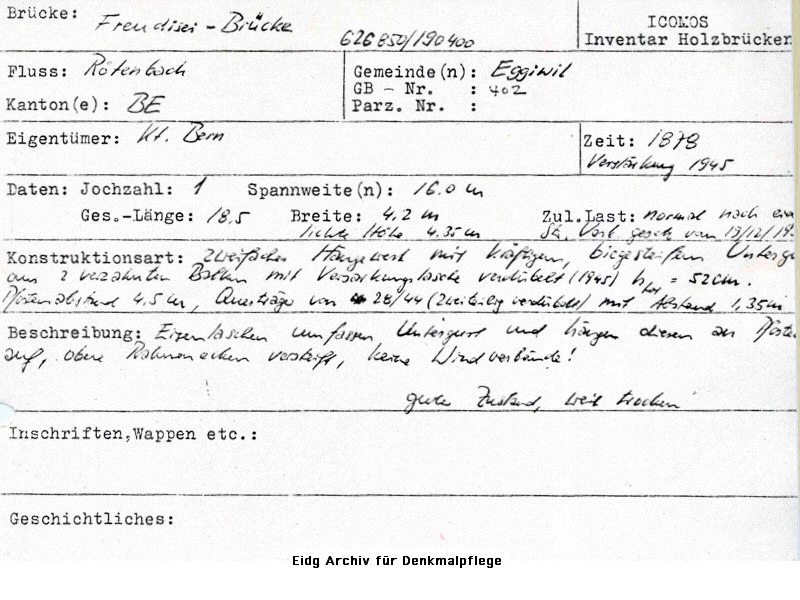 Brücke: Freudisei-Brücke 626 850/190 400 ICOMOS
Inventar Holzbrücken
Fluss: Rötenbach Gemeinde(n): Eggiwil
GB - Nr. : 402
Kanton(e): BE Parz. Nr. :
Eigentümer: Kt. Bern Zeit: 1878
Verstärkung 1945
Daten: Jochzahl: 1 Spannweite(n): 16.0 m
Ges.-Länge: 18,5 Breite: 4,2 m Zul.Last: normal nach
lichte Höhe 4.35 m
Konstruktionsart: Hängewerk mit kräftigem, biegesteifem
aus 2 verzahnten Balken mit Verstärkungslasche verdübelt (1945) = 52 cm.
Pfostenabstand 4,5 m, Querträger von 28/44 (zweiteilig verdübelt) mit Abstand 1,35 m
Beschreibung: Eisenlaschen umfassen Untergurt und hängen diesen an
auf, obere Rahmenecken versteift, keine Windverbände!
guter Zustand, weil trocken
Inschriften,Wappen etc.:
Geschichtliches:
Eidg Archiv für Denkmalpflege